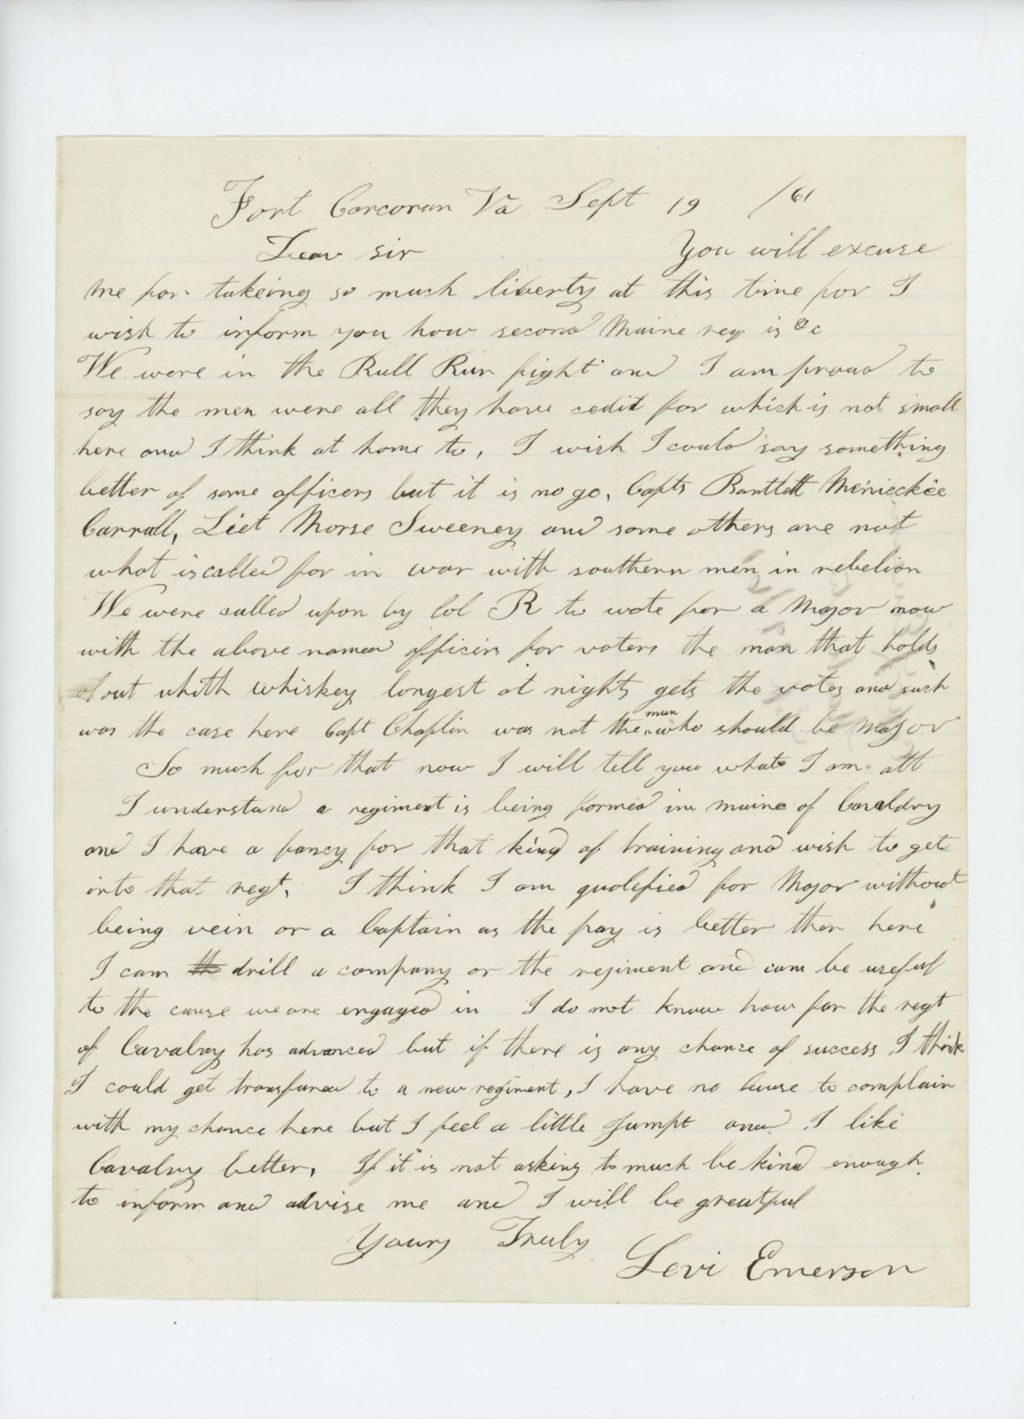 Fort Corcoran Va Sept 19 /61
Dear sir You will excuse
me for takeing so much liberty at this time for I
wish to inform you how second Maine reg is &c
We were in the Bull Run fight and I am proud to
say the men were all they have cedit for which is not small
here and I think at home to, I wish I could say something
better of some officers but it is no go, Capts Bartlett Meinieckée
Carroll, Liet Morse Sweeney and some others are not
what is called for in war with southern men in rebelion
We were called upon by Col R to vote for a Major now
with the above named officirs for voters the man that holds
out whith whiskey longest at nights gets the votes and such
was the case here Capt Chaplin was not the man who should be Major
So much for that now I will tell you what I am att
I understand a regiment is being formed in maine of Cavaldry
and I have a fancy for that kind of training and wish to get
into that regt, I think I am qualefied for Major without
being vein or a Captain as the pay is better then here
I cam th drill a company or the regiment and cam be useful
to the cause we are engaged in I do not know how far the regt
of Cavalray has advanced but if there is any chance of success I think
I could get transfured to a new regiment, I have no cause to complain
with my chance here but I feel a little Jumpt and I like
Cavalry better, If it is not asking to much be kind enough
to inform and advise me and I will be greatful
Yours Truly
Levi Emerson